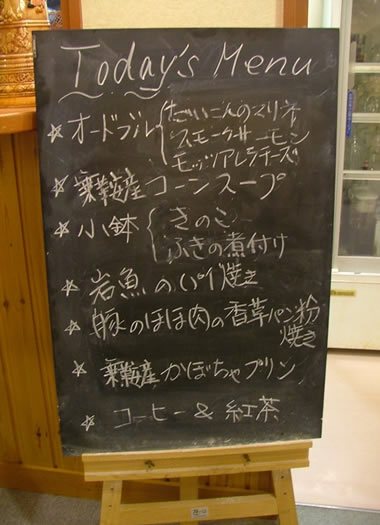 Today's Menu
☆ オードブル { だいこんのマリネ
スモークサーモン
モッツアレラチーズ
☆ 乗鞍産コーンスープ
☆ 小鉢 { きのこ
ふきの煮付け
☆ 岩魚のパイ焼き
☆ 豚のほほ肉の香草パン粉
焼き
☆ 乗鞍産かぼちゃプリン
☆ コーヒー & 紅茶